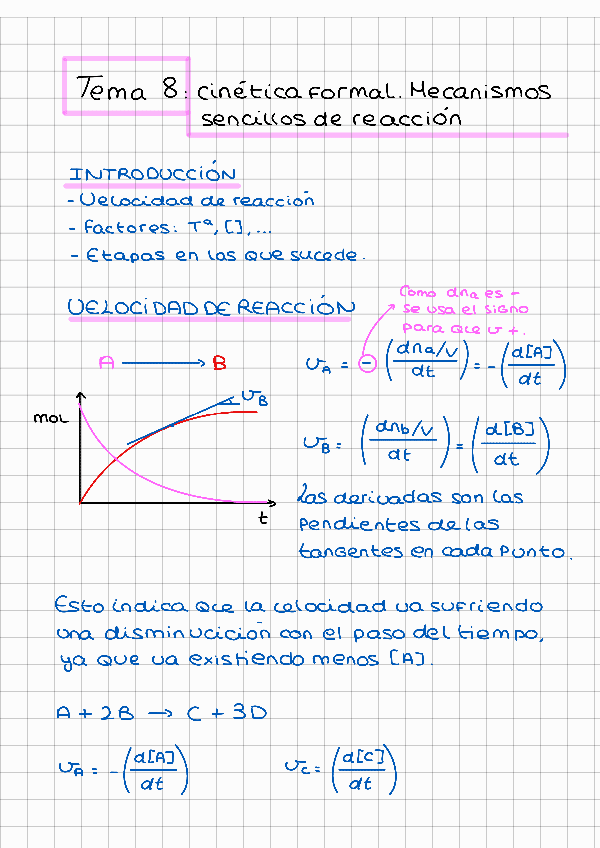 Tema 8: cinética formal. Mecanismos
sencillos de reacción
INTRODUCCIÓN
- Velocidad de reacción
- Factores: Tª, [], ...
- Etapas en las que sucede.
VELOCIDAD DE REACCIÓN
Como dna es -
se usa el signo
para que v +.
A → B
vA = - (dna/v / dt) = - (d[A] / dt)
mol
vB
t
vB = (dnb/v / dt) = (d[B] / dt)
Las derivadas son las
pendientes de las
tangentes en cada punto.
Esto indica que la celocidad va sufriendo
una disminucición con el paso del tiempo,
ya que va existiendo menos [A].
A + 2B → C + 3D
vA = - (d[A] / dt)
vC = (d[C] / dt)